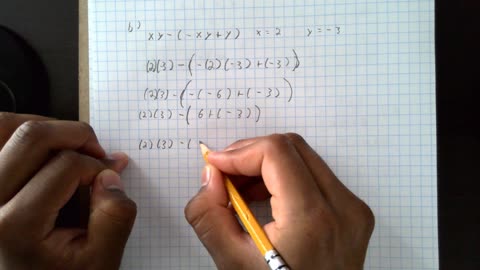 b) xy-(-xy+y) x=2 y=-3
(2)(3)-(-(2)(-3)+(-3))
(2)(3)-(-(-6)+(-3))
(2)(3)-(6+(-3))
(2)(3)-(